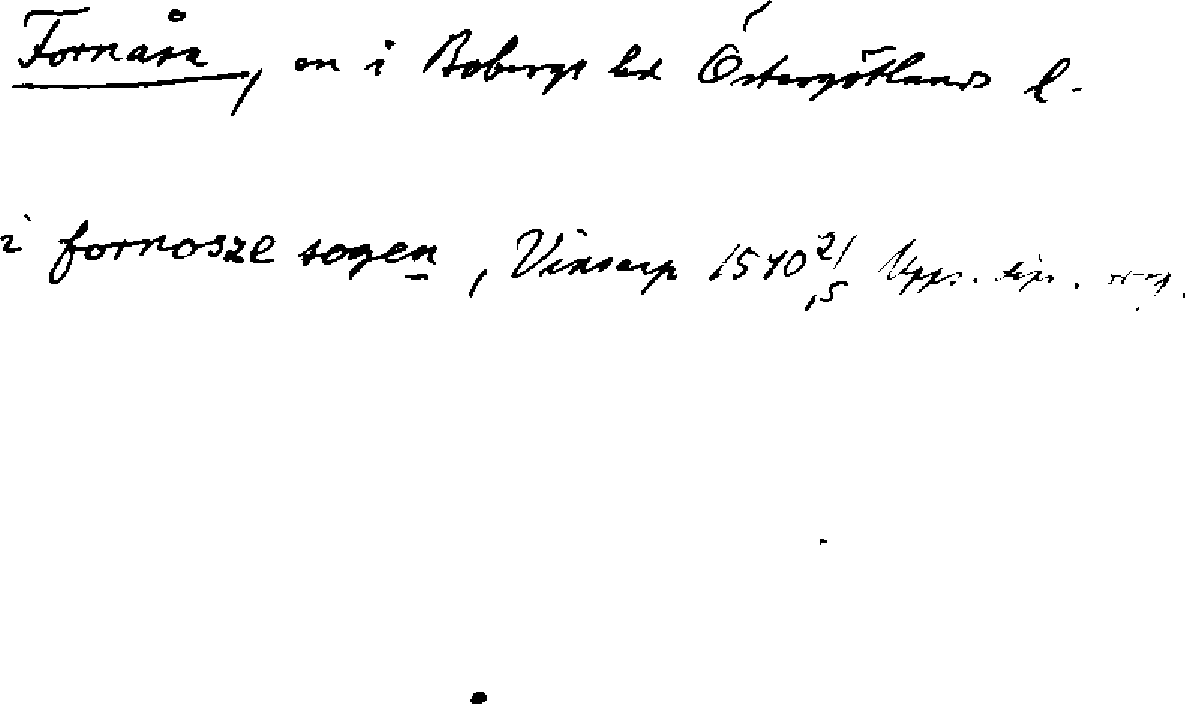 Fornåsa, sn i Bobergs hd Östergötlands l.
i fornosze sogen, Vinsarp 1540 21/5 Upps. dipl.